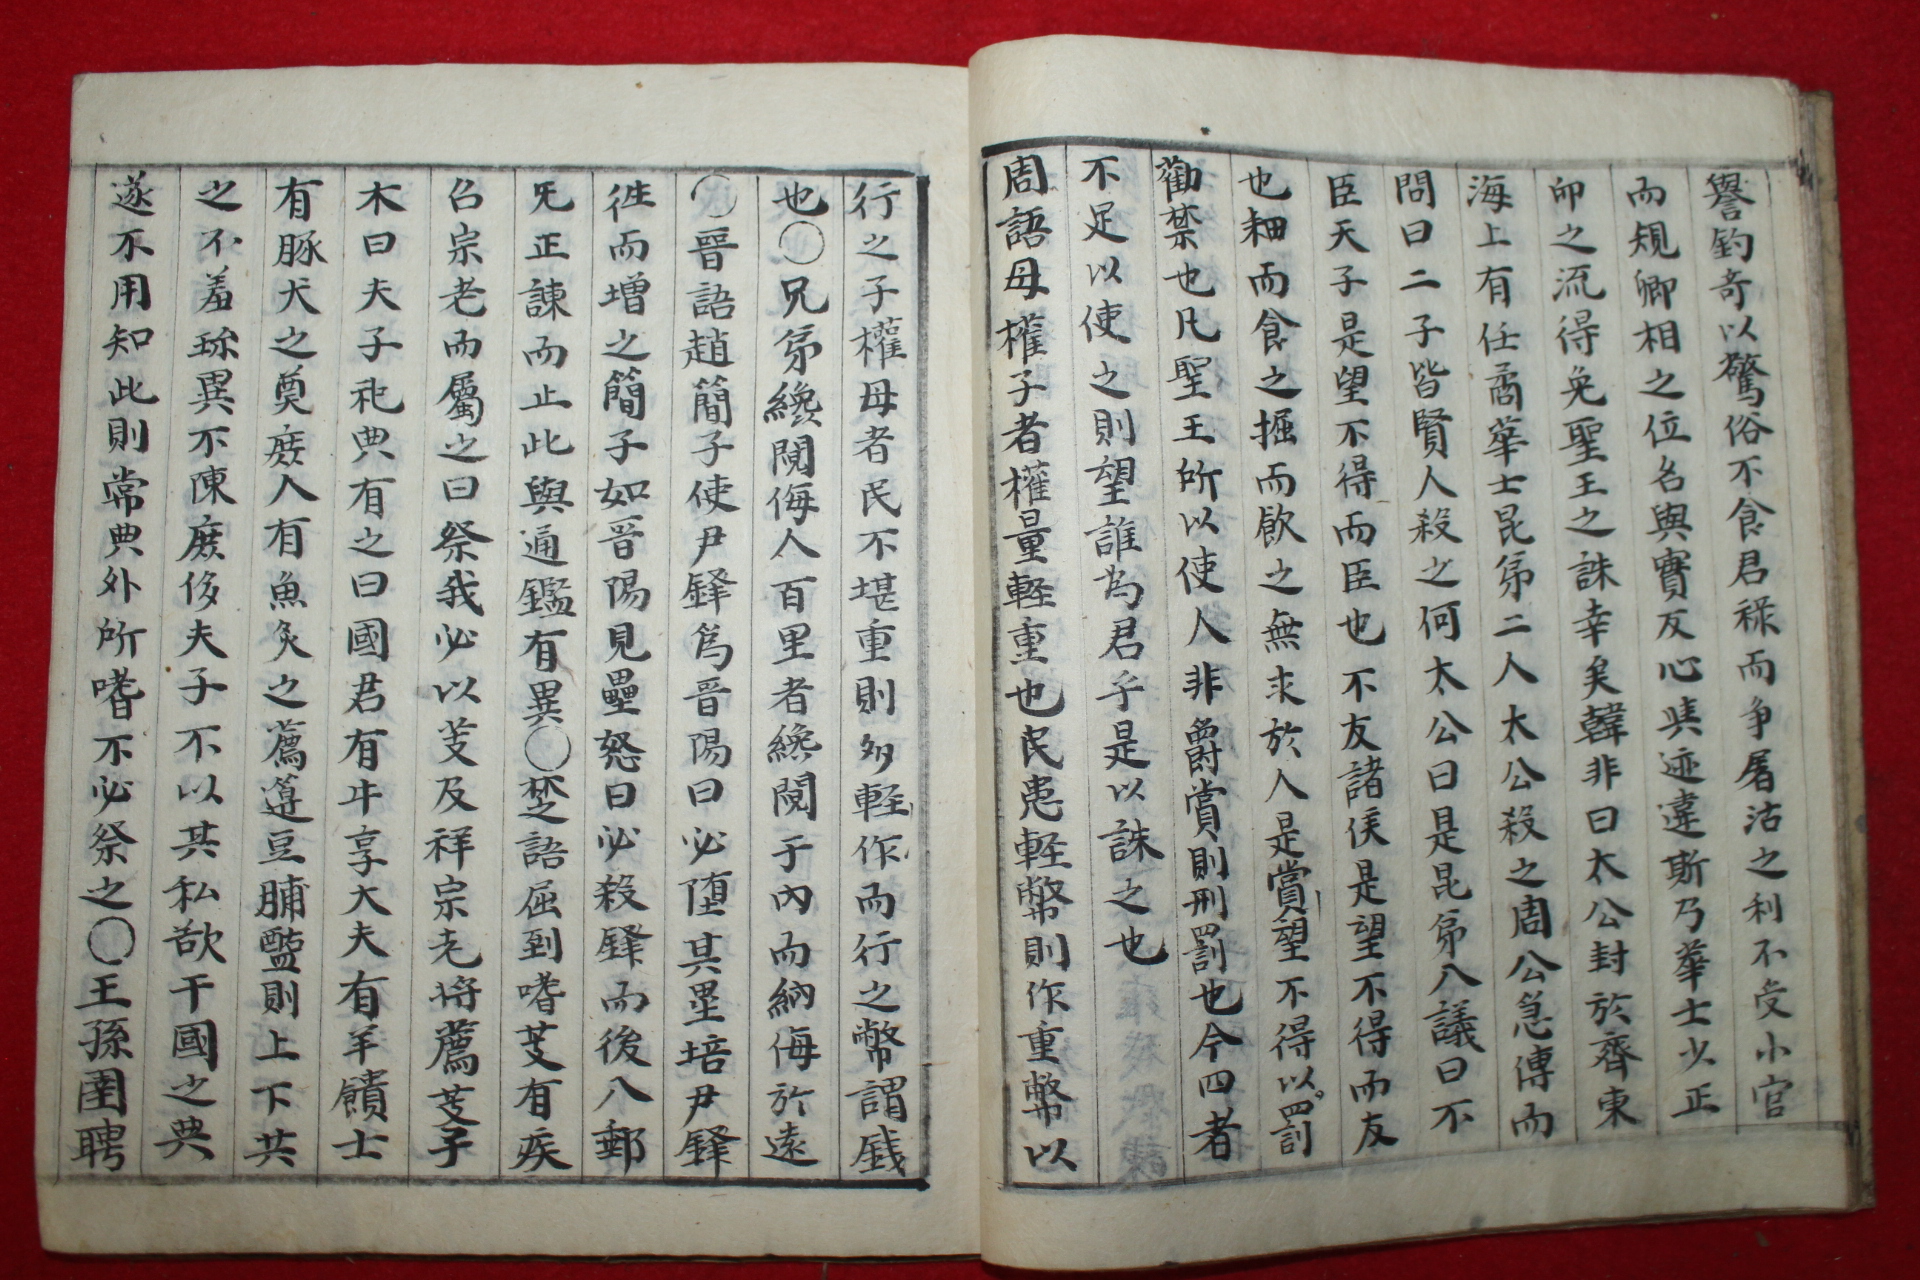 譽釣奇以驚俗不食君祿而争屠沽之利不受小官
而規卿相之位名與實反心與迹違斯乃華士少正
卯之流得免聖王之誅幸矣韓非曰太公封於齊東
海上有任矞華士昆弟二人太公殺之周公急傳而
問曰二子皆賢人殺之何太公曰是昆弟八議曰不
臣天子是望不得而臣也不友諸侯是望不得而友
也耕而食之掘而飲之無求於人是賞望不得以罰
勸禁也凡聖王所以使人非爵賞則刑罰也今四者
不足以使之則望誰為君乎是以誅之也
周語母權子者權量輕重也民患輕幣則作重幣以
行之子權母者民不堪重則多輕作而行之幣謂錢
也〇兄弟纔鬩侮人百里者纔鬩于內而納侮於遠
〇晉語趙簡子使尹鐸為晉陽曰必墮其壘培尹鐸
徃而增之簡子如晉陽見壘怒曰必殺鐸而後入郵
旡正諫而止此與通鑑有異〇楚語屈到嗜芰有疾
召宗老而屬之曰祭我必以芰及祥宗老將薦芰子
木曰夫子祀典有之曰國君有牛享大夫有羊饋士
有豚犬之奠庶人有魚炙之薦籩豆脯醢則上下共
之不羞珎異不陳庶侈夫子不以其私欲干國之典
遂不用知此則常典外所嗜不必祭之〇王孫圉聘